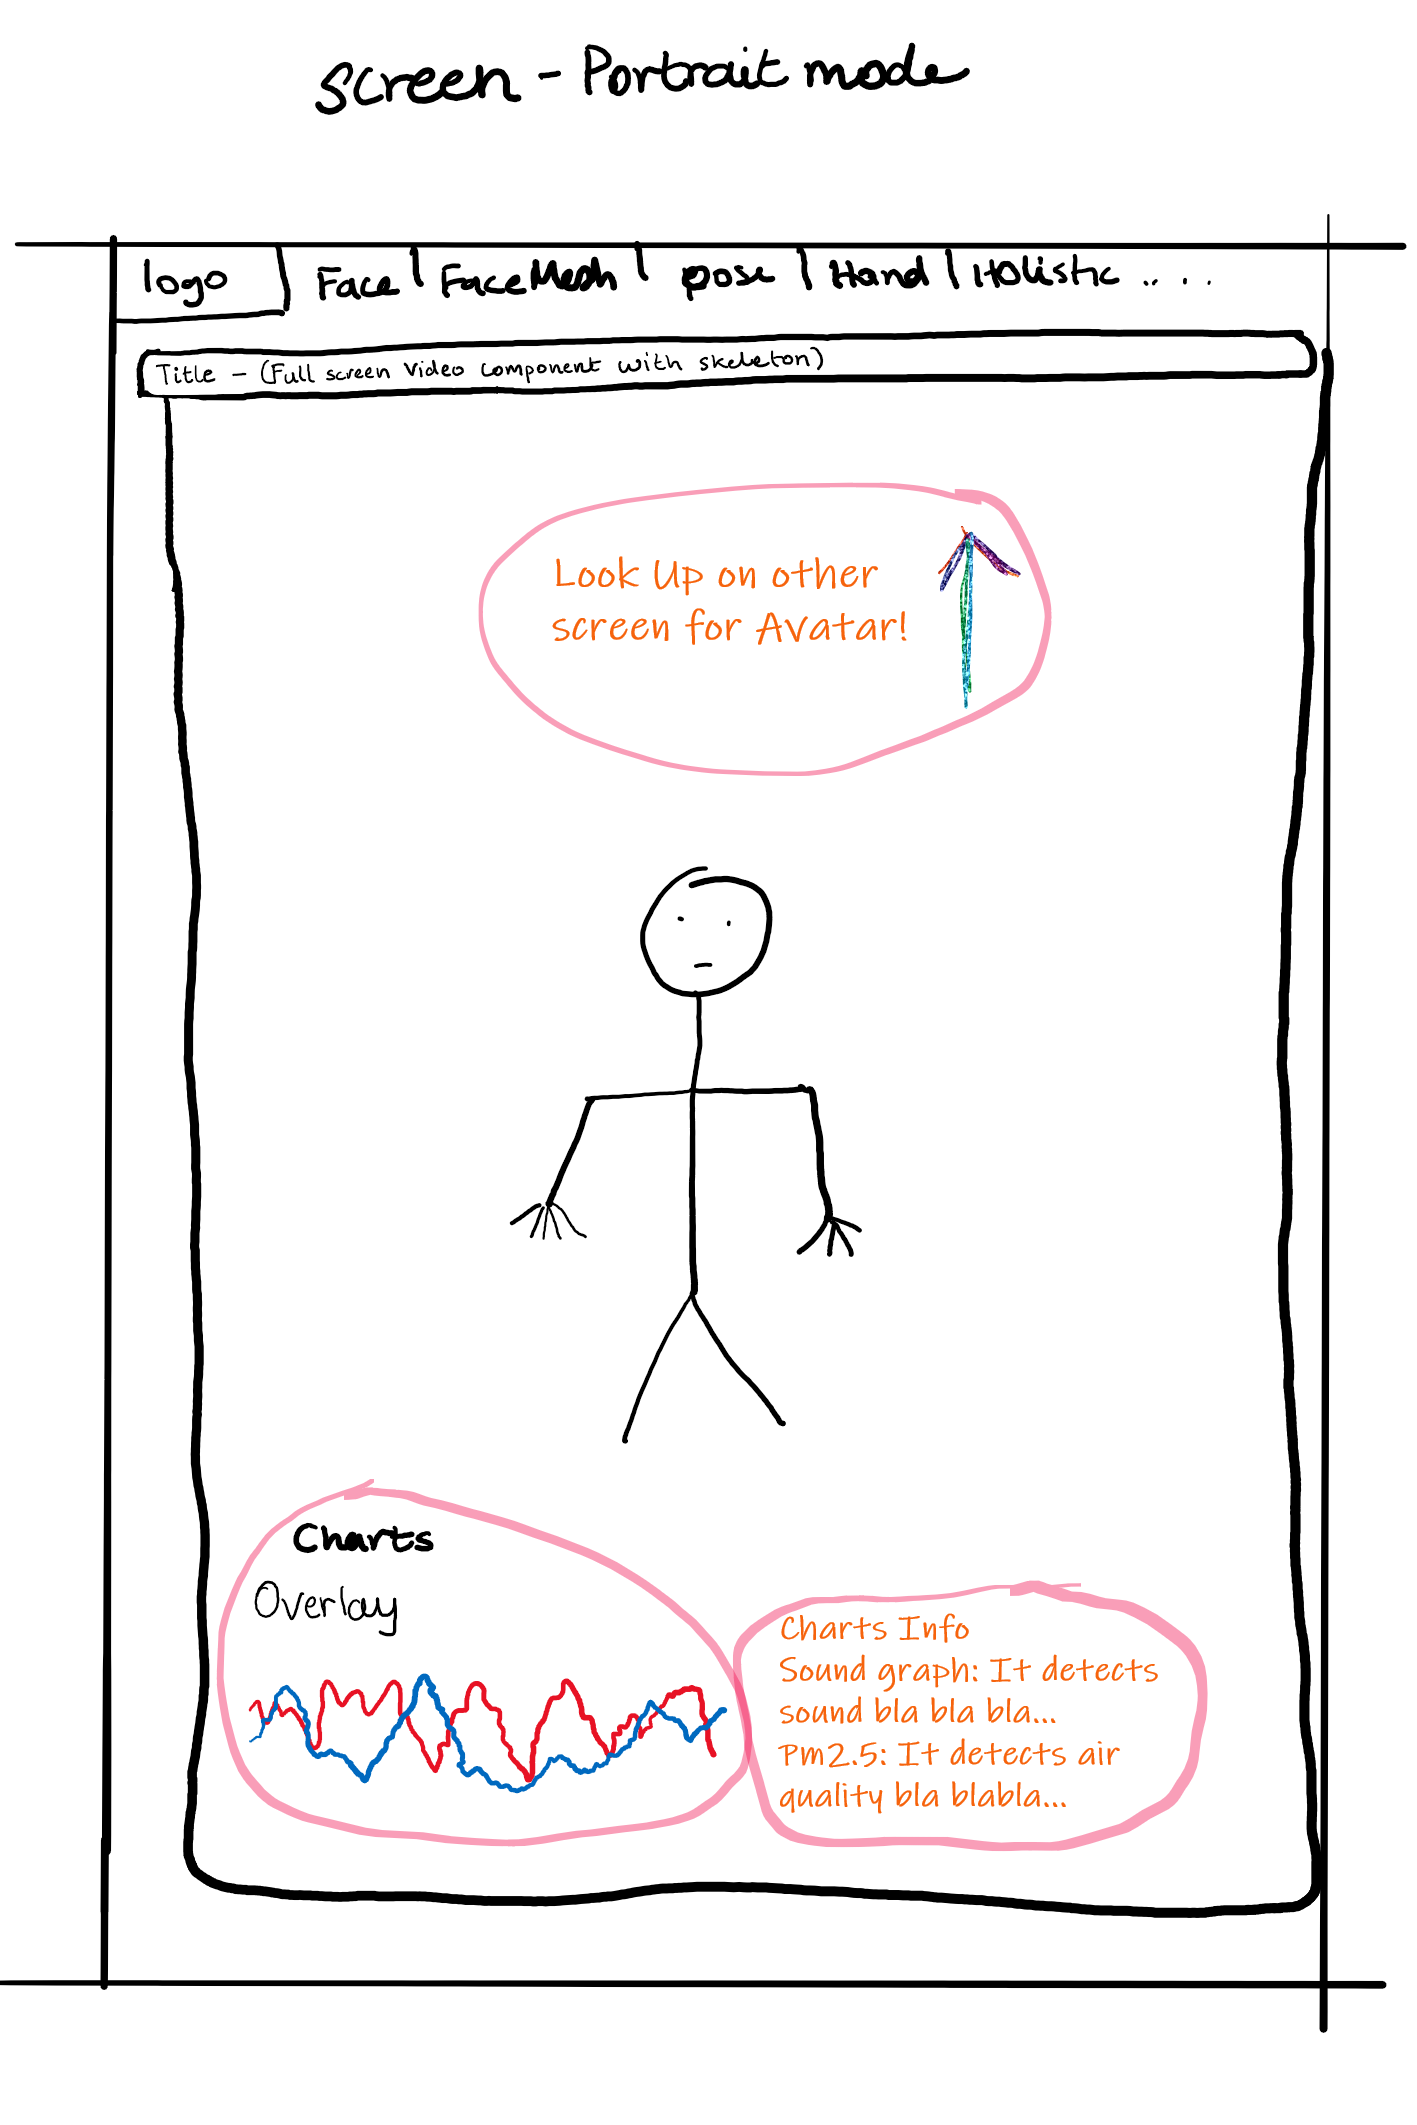 Screen - Portrait mode
logo
Face | FaceMesh | pose | Hand | Holistic .. . .
Title - (Full screen Video component with skeleton)
Look Up on other
screen for Avatar!
Charts
Overlay
Charts Info
Sound graph: It detects
sound bla bla bla...
Pm2.5: It detects air
quality bla blabla...